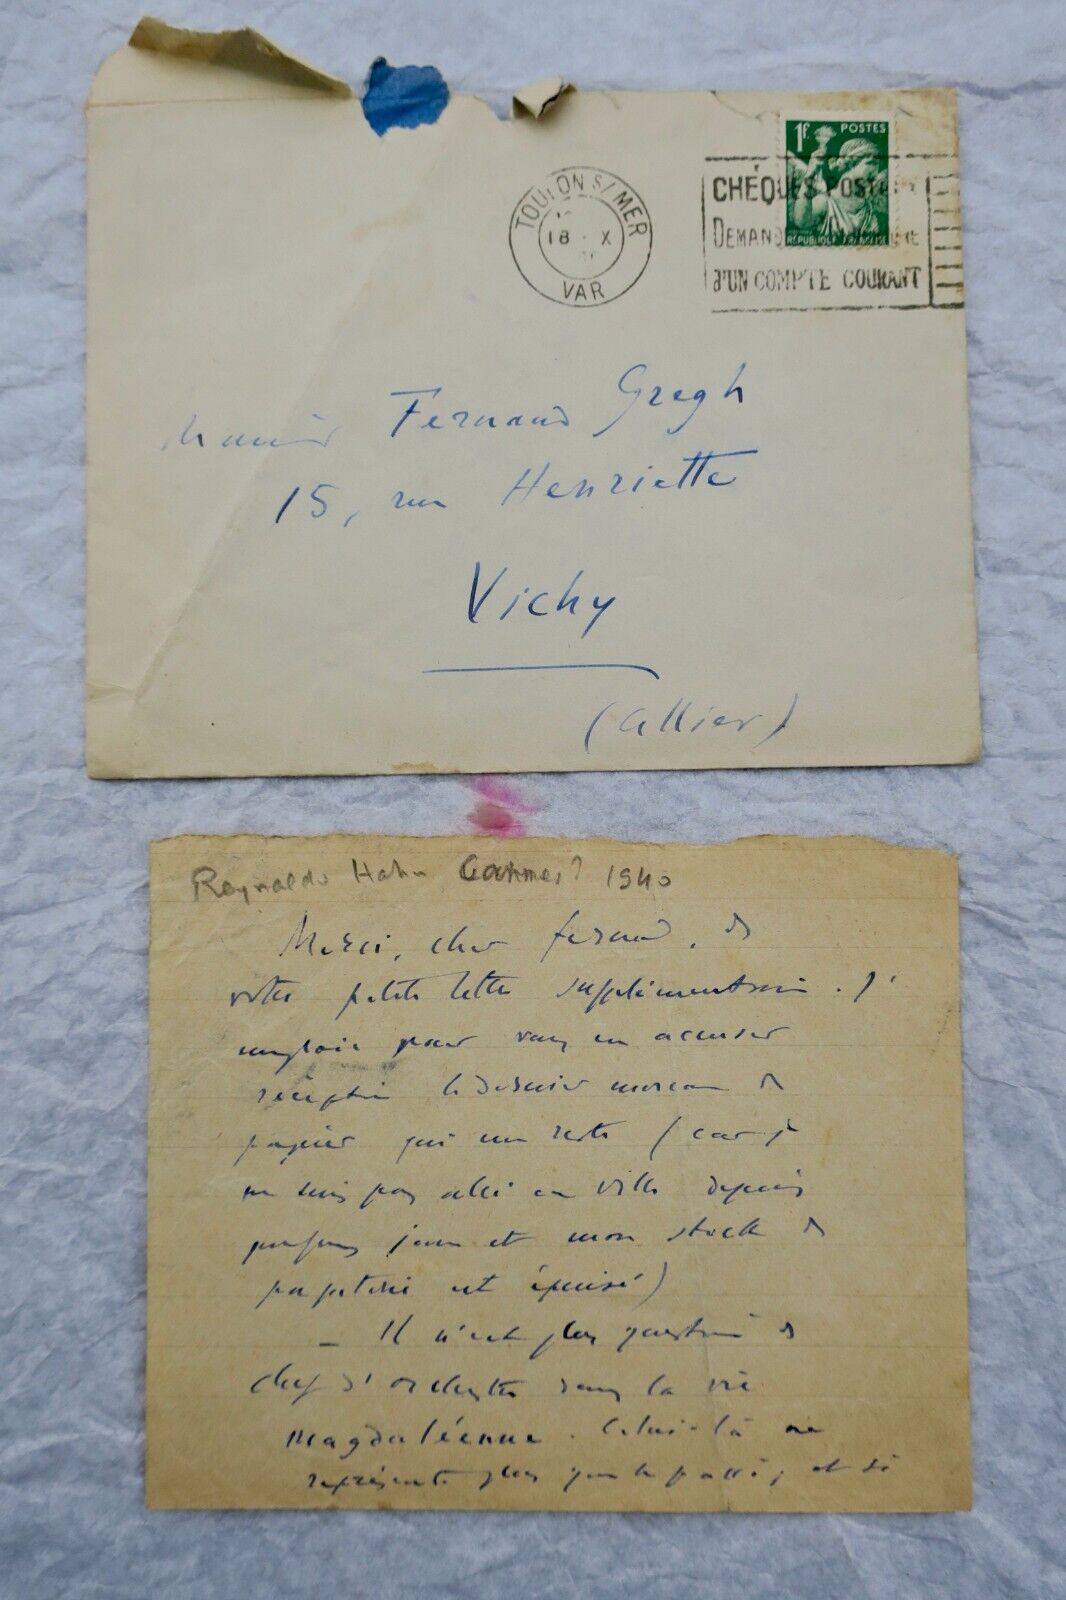 1F. POSTES
RÉPUBLIQUE FRANÇAISE
TOULON S/MER
18 X
VAR
CHÈQUES POSTAUX
DEMAND
D'UN COMPTE COURANT
Monsieur Fernand Gregh
15, rue Henriette
Vichy
(Allier)
Reynaldo Hahn Cannes? 1940
Merci, cher Fernand, de
votre petite lettre supplémentaire. J'
emploie pour vous en accuser
réception le dernier morceau de
papier qui me reste (car je
ne suis pas allé en ville depuis
jours et mon stock de
papeterie est épuisé)
— Il n'est plus question de
chef d'orchestre dans la vie
Magdaléenne. Celui-là ne
représente plus que le passé, et si